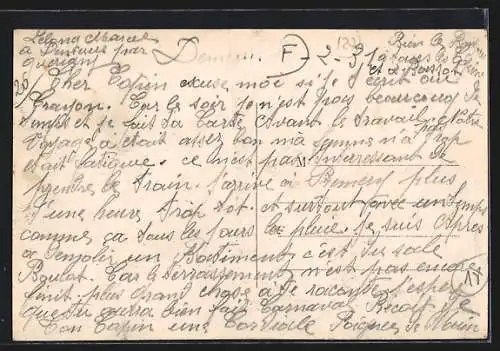 Marcel
à par
Guérigny
F 2-3-19
Bien le
et à
Cher Copin excuse moi si je t'écrit au
Crayon. Car le soir je n'est pas beaucoup de
temps et je fait ta Carte avant le travail. Notre
voyage à était assez bon ma femme n'a pas trop
était fatiguée. ce n'est pas interressant de
prendre le train. j'arrive à Prémery plus
d'une heure trop tôt. et surtout avec un temps
comme ça tous les jours la pluie. je suis après
à un Batiment, c'est du sale
Boulat. Car le terrassement n'est pas encore
finit. plus Grand chose à te raconter. J'espère
que tu aura bien fait Carnaval. Reçoit
ton Copin une Cordiale Poignée de Main